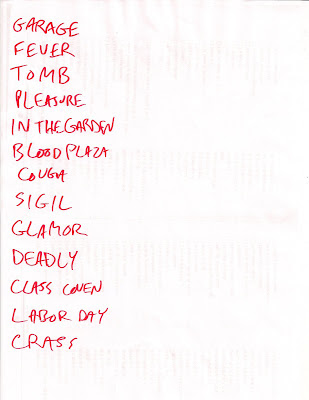 GARAGE
FEVER
TOMB
PLEASURE
IN THE GARDEN
BLOOD PLAZA
COUGA
SIGIL
GLAMOR
DEADLY
CLASS COVEN
LABOR DAY
CRASS